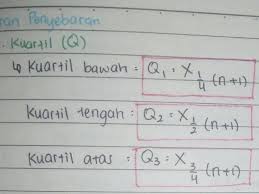 ran Penyebaran
. Kuartil (Q)
↳ Kuartil bawah = Q₁ = X 1/4 (n+1)
Kuartil tengah = Q₂ = X 1/2 (n+1)
Kuartil atas = Q₃ = X 3/4 (n+1)